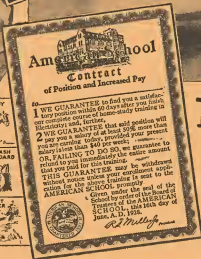 Am hool
Contract
of Position and Increased Pay
to
1 WE GUARANTEE to find you a satisfac-
tory position within 60 days after you finish
our complete course of home-study training in
Electricity and, further,
2 WE GUARANTEE that said position will
pay you a salary of at least 50% more than
you are earning today, provided your present
salary is less than $40 per week;
OR, FAILING TO DO SO, we guarantee to
refund to you immediately the entire amount
that you paid for this training.
THIS GUARANTEE may be withdrawn
without notice unless your enrollment appli-
cation for the above training is sent to the
AMERICAN SCHOOL promptly
Given under the seal of the
School by order of the Board of
Trustees of the AMERICAN
SCHOOL, this 16th day of
June, A. D., 1928.